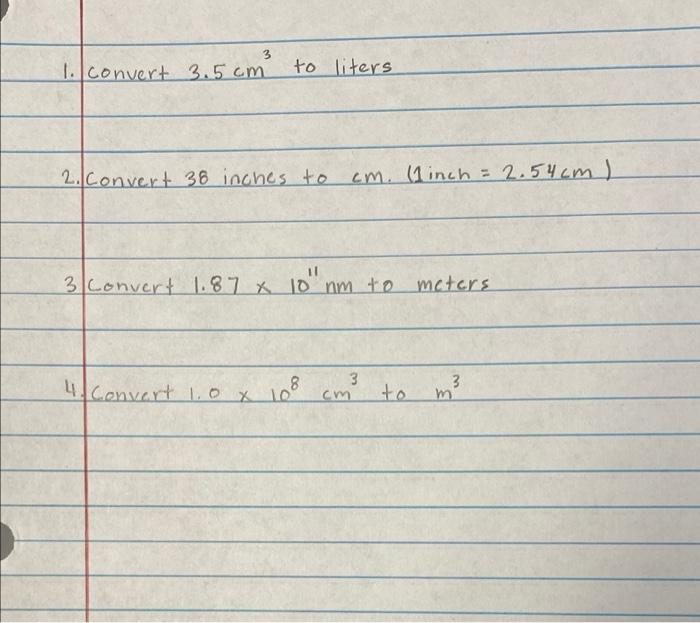 1. convert 3.5 cm³ to liters
2. Convert 38 inches to cm. (1 inch = 2.54 cm)
3 Convert 1.87 x 10¹¹ nm to meters
4. Convert 1.0 x 10⁸ cm³ to m³